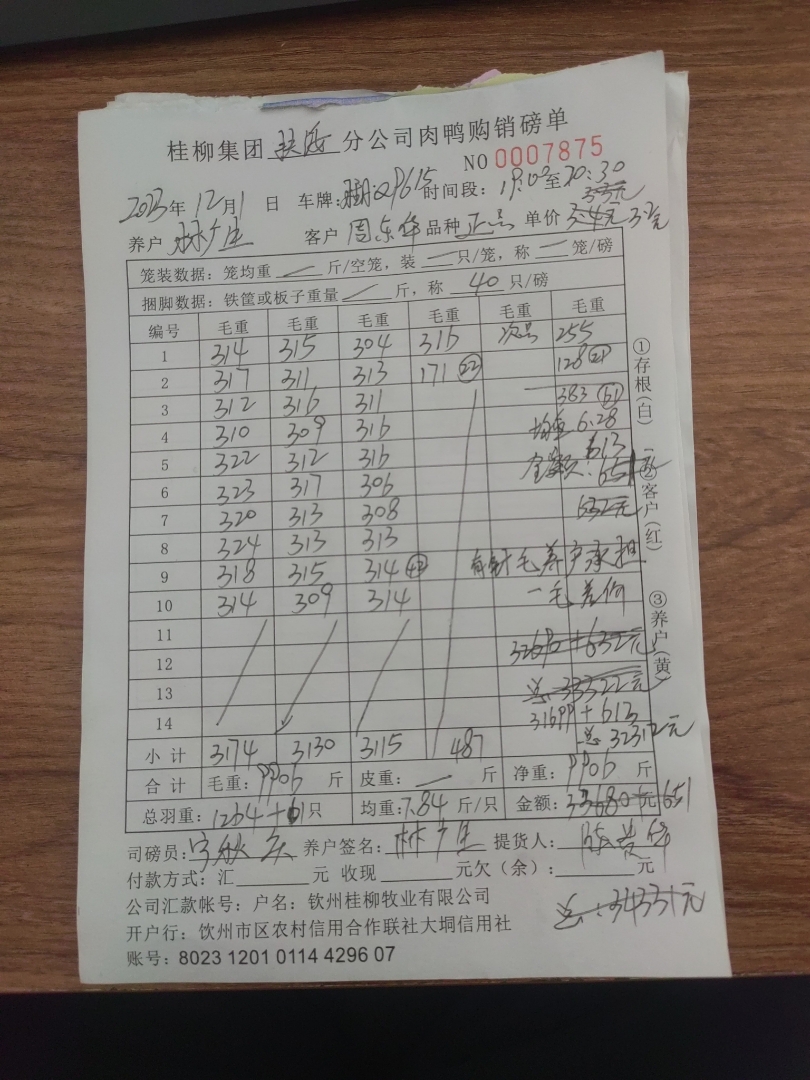 桂柳集团 扶海 分公司肉鸭购销磅单
NO 0007875
2023年 12月1日 车牌: P615 时间段: 19:00至20:30
3.3元
养户 林广生 客户 周东华 品种 正品 单价 3.4元 3.2元
笼装数据: 笼均重 — 斤/空笼, 装 — 只/笼, 称 — 笼/磅
捆脚数据: 铁筐或板子重量 — 斤, 称 40 只/磅
编号 毛重 毛重 毛重 毛重 毛重 毛重
1 314 315 304 316 次品 255
2 317 311 313 171 22 128 21
3 312 316 311 383 61
4 310 309 316 均重 6.28
5 322 312 316 金额: 651 613
6 323 317 306
7 320 313 308 632元
8 324 313 313
9 318 315 314 42 有针毛养户承担
10 314 309 314 一毛差价
11
12 32690+632元
13 总 33322元
14 31699+613
小计 3174 3130 3115 487 总 32312元
合计 毛重: 9906 斤 皮重: — 斤 净重: 9906 斤
总羽重: 1264+61只 均重: 7.84 斤/只 金额: 33680元 651
司磅员: 养户签名: 林广生 提货人:
付款方式: 汇 元 收现 元欠(余): 元
公司汇款帐号: 户名: 钦州桂柳牧业有限公司
总: 34331元
开户行: 钦州市区农村信用合作联社大垌信用社
账号: 8023 1201 0114 4296 07
①存根(白) ②客户(红) ③养户(黄)